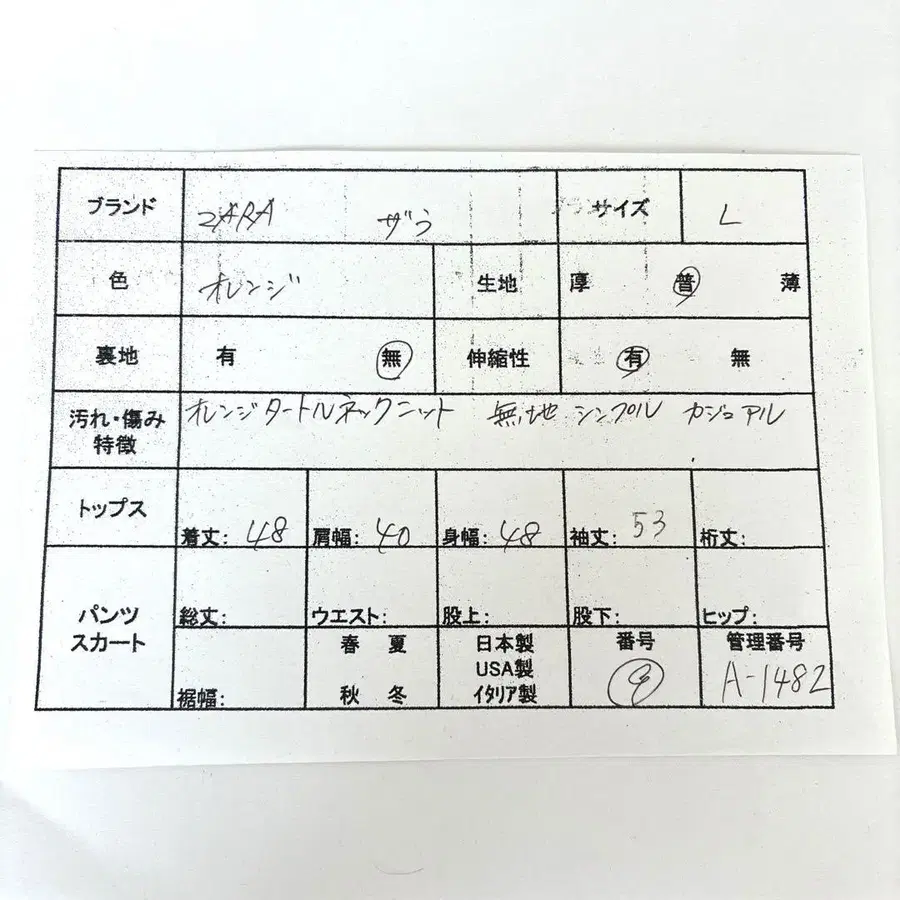 ブランド ZARA ザラ サイズ L
色 オレンジ 生地 厚 普 薄
裏地 有 無 伸縮性 有 無
汚れ・傷み 特徴 オレンジタートルネックニット 無地 シンプル カジュアル
トップス 着丈: 48 肩幅: 40 身幅: 48 袖丈: 53 裄丈:
パンツ スカート 総丈: ウエスト: 股上: 股下: ヒップ:
裾幅: 春 夏 秋 冬 日本製 USA製 イタリア製 番号 管理番号 A-1482